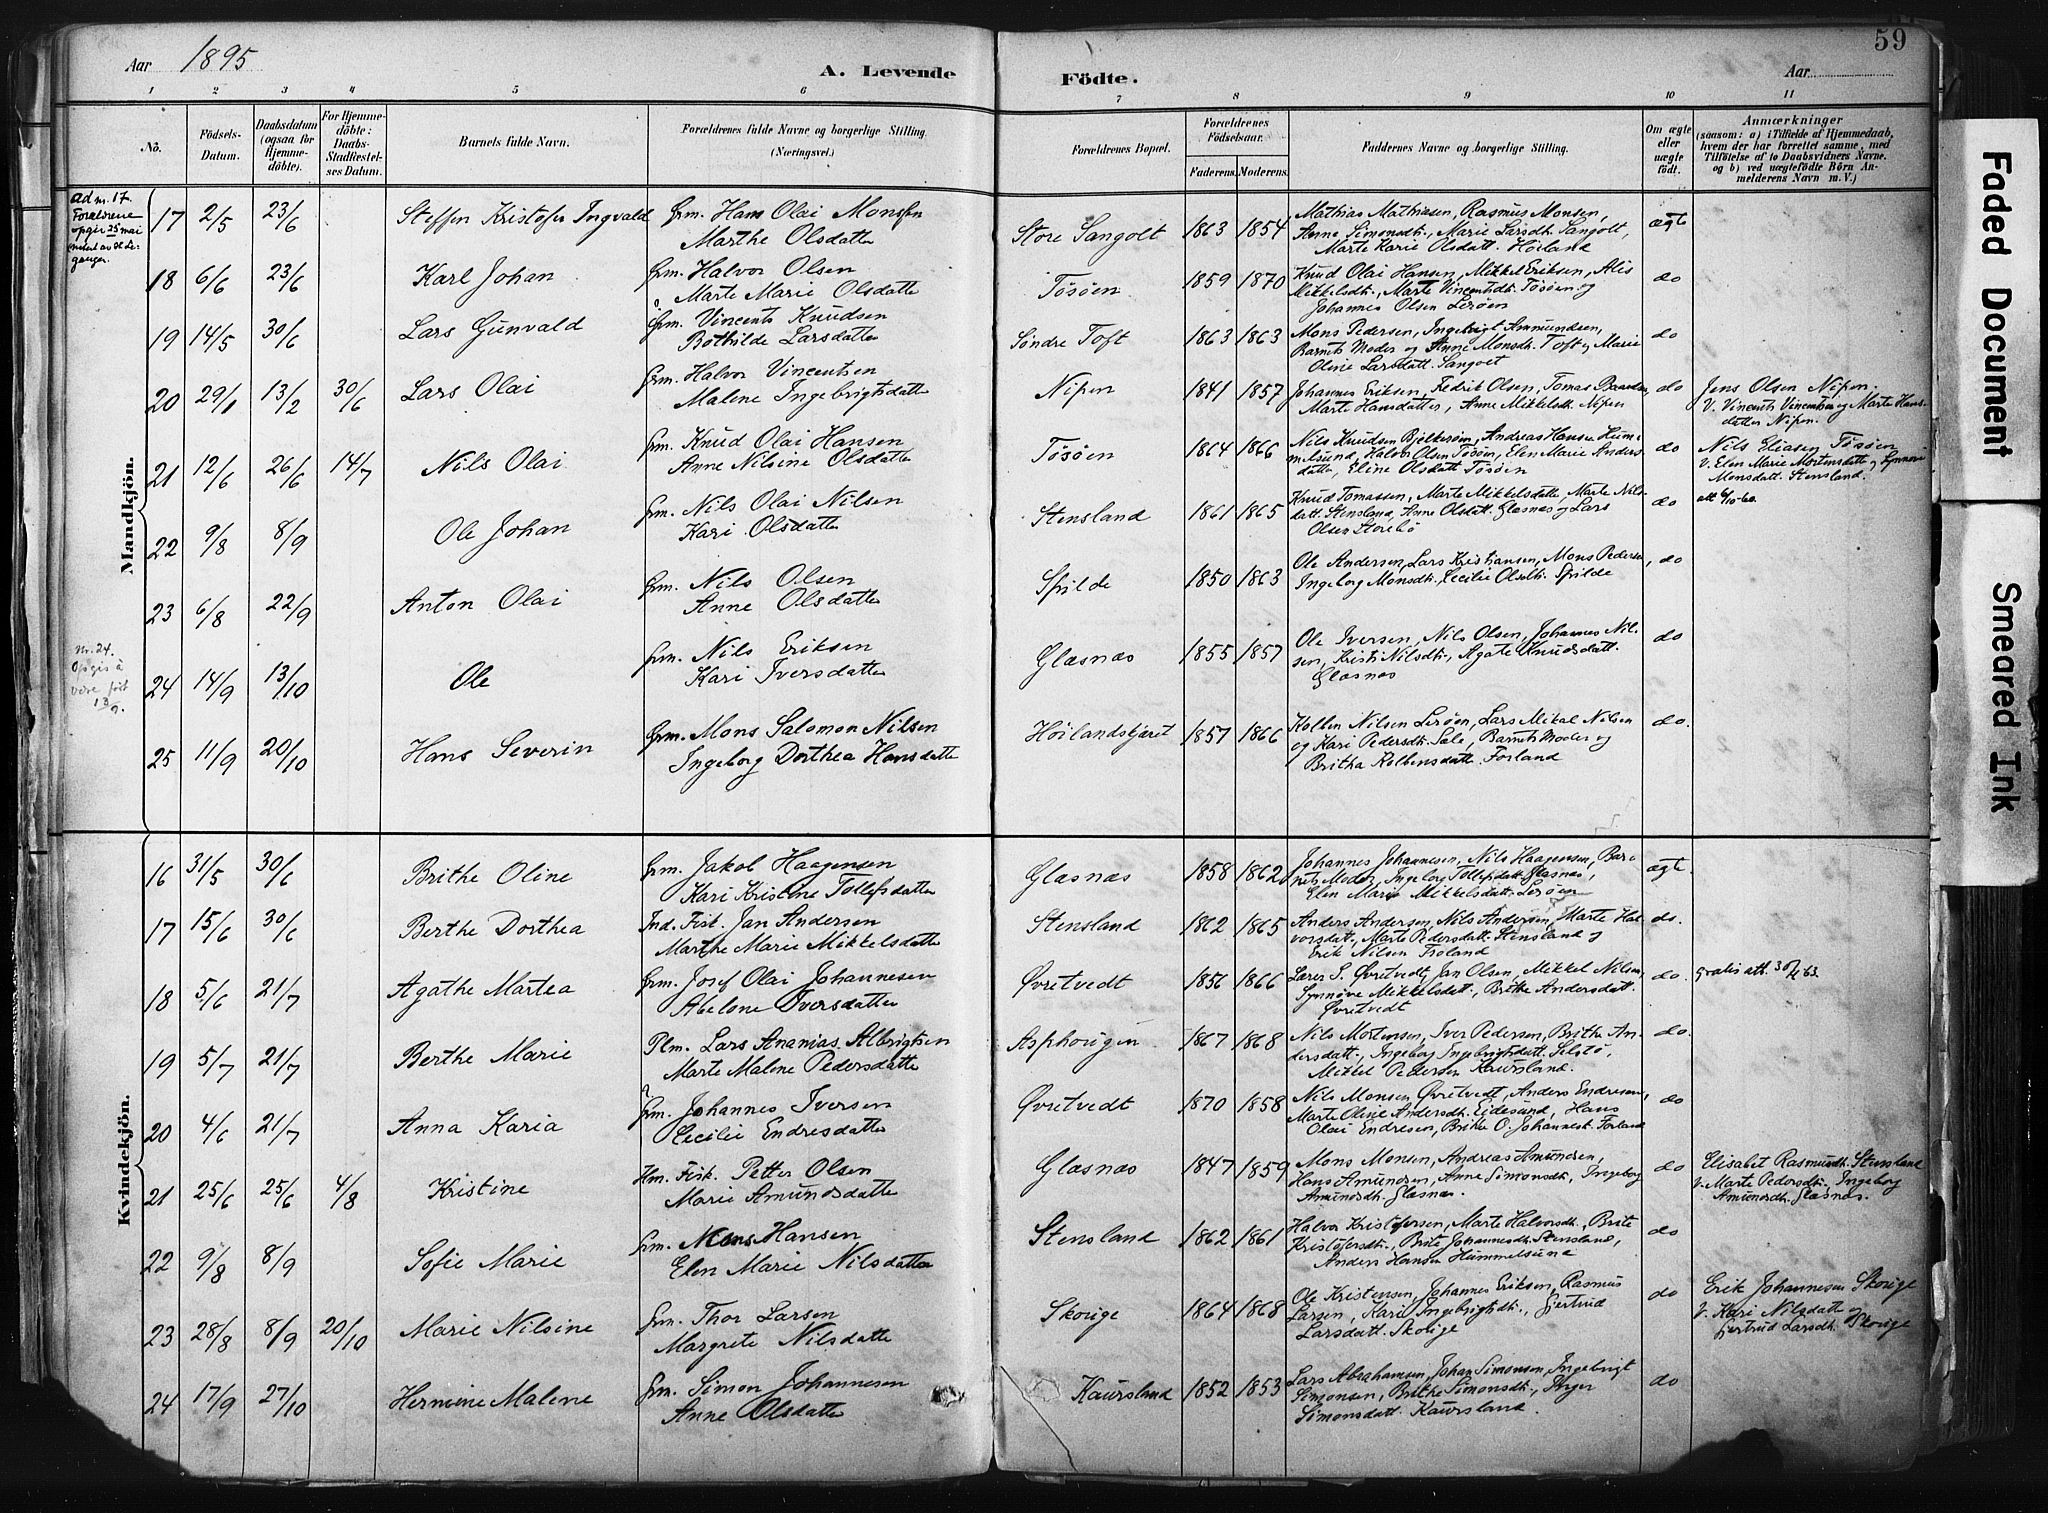 59
Aar 1895
A. Levende
Födte.
Aar
1 2 3 4 5 6 7 8 9 10 11
Nô.
Födsels-
Datum.
Daabsdatum
(ogsaa for
Hjemme-
döbte).
For Hjemme-
döbte:
Daabs-
Stadfæstel-
ses Datum.
Barnets fulde Navn.
Forældrenes fulde Navne og borgerlige Stilling.
(Næringsvei.)
Forældrenes Bopæl.
Forældrenes
Födselsaar.
Faderens. Moderens.
Faddernes Navne og borgerlige Stilling.
Om ægte
eller
uægte
födt.
Anmærkninger
(saasom: a) i Tilfælde af Hjemmedaab,
hvem der har forrettet samme, med
Tilföielse af to Daabsvidners Navne.
og b) ved uægtefödte Börn An-
melderens Navn m. V.)
Mandkjön.
ad nr. 17.
Forældrene
opgir 25 mai
17 2/5 23/6 Steffen Kristofer Ingvald Grm. Hans Olai Monsen
Marthe Olsdatter
Store Sangolt 1863 1854 Mathias Mathiasen, Rasmus Monsen,
Anne Simonsdt., Marie Larsdt. Sangolt,
Marte Karie Olsdatt. Höiland
ægte
18 6/6 23/6 Karl Johan Grm. Halvor Olsen
Marte Marie Olsdatter
Tösöen 1859 1870 Knud Olai Hansen, Mikkel Eriksen, Alis
Mikkelsdt., Marte Vincentsdt. Tösöen og
Johannes Olsen Leröen
do
19 14/5 30/6 Lars Gunvald Grm. Vincents Knudsen
Bothilde Larsdatter
Söndre Toft 1863 1863 Mons Pedersen, Ingebrigt Ammundsen,
Barnets Moder og Anne Monsdt. Toft og Marie
Oline Larsdatt. Sangolt
do
20 29/1 13/2 30/6 Lars Olai Grm. Halvor Vincentsen
Malene Ingebrigtsdatter
Nipen 1841 1857 Johannes Eriksen, Fedrik Olsen, Tomas Baardsen,
Marte Hansdatter, Anne Mikkelsdt. Nipen
do Jens Olsen Nipen.
V. Vincents Vincentsen og Marte Hans-
datter Nipen.
21 12/6 26/6 14/7 Nils Olai Grm. Knud Olai Hansen
Anne Nilsine Olsdatter
Tösöen 1864 1866 Nils Knudsen Bjelkeröen, Andreas Hansen Hum-
melsund, Halvor Olsen Tösöen, Elen Marie Anders-
datter, Eline Olsdatt. Tösöen
do Nils Eliasen Tösöen
V. Elen Marie Mortensdatter og Synnöve
Monsdatt. Stensland.
22 9/8 8/9 Ole Johan Grm. Nils Olai Nilsen
Kari Olsdatter
Stensland 1861 1865 Knud Tomassen, Marte Mikkelsdatter, Marte Nils-
datt. Stensland, Anne Olsdatt. Glæsnæs og Lars
Olsen Storebö
do
23 6/8 22/9 Anton Olai Grm. Nils Olsen
Anne Olsdatter
Spilde 1850 1863 Ole Andersen, Lars Kristiansen, Mons Pedersen,
Ingeborg Monsdt., Cecilie Olsdt. Spilde
do
nr. 24.
Opgis å
være født
13/9.
24 14/9 13/10 Ole Grm. Nils Eriksen
Kari Iversdatter
Glæsnæs 1855 1857 Ole Iversen, Nils Olsen, Johannes Nil-
sen, Kristi Nilsdt., Agate Knudsdatt.
Glæsnæs
do
25 11/9 20/10 Hans Severin Grm. Mons Salomon Nilsen
Ingeborg Dorthea Hansdatter
Höilandskjæret 1857 1866 Kolben Nilsen Leröen, Lars Mikal Nilsen
og Kari Pedersdt. Sæle, Barnets Moder og
Britha Kolbensdatt. Forland
do.
Kvindekjön.
16 31/5 30/6 Brithe Oline Grm. Jakob Haagensen
Kari Kristine Tollefsdatter
Glæsnæs 1858 1862 Johannes Johannesen, Nils Haagensen, Bar-
nets Moder, Ingeborg Tollefsdatt. Glæsnæs,
Elen Marie Mikkelsdatt. Leröen
ægt
17 15/6 30/6 Berthe Dorthea Ind. Fisk. Jan Andersen
Marthe Marie Mikkelsdatter
Stensland 1862 1865 Anders Andersen, Nils Andersen, Marte Hal-
vorsdatt., Marte Pedersdatt. Stensland og
Erik Nilsen
do.
18 5/6 21/7 Agathe Martea Grm. Josef Olai Johannesen
Abelone Iversdatter
Övretvedt 1856 1866 Lærer S. Övretvedt, Jan Olsen, Mikkel Nilsen,
Synnöve Mikkelsdatt., Brithe Andersdatt.
Övretvedt
do. gratis att.
19 5/7 21/7 Berthe Marie Plm. Lars Ananias Albrigtsen
Marte Malene Pedersdatter
Asphougen 1867 1868 Nils Mortensen, Iver Pedersen, Brithe An-
dersdatt., Ingeborg Ingebrigtsdatt. Selstö,
Mikkel Pedersen Kaursland.
do.
20 4/6 21/7 Anna Karia Grm. Johannes Iversen
Cecilie Endresdatter
Övretvedt 1870 1858 Nils Monsen Övretvedt, Anders Endresen,
Marte Oline Andersdt. Eidesund, Hans
Olai Endresen, Brithe O. Johannest. Forland
do
21 25/6 25/6 4/8 Kristine Hm. Fisk. Petter Olsen
Marie Amundsdatter
Glæsnæs 1847 1859 Mons Monsen, Andreas Amundsen,
Hans Amundsen, Anne Simonsdt., Ingeborg
Amundsdt. Glæsnæs.
do Elisabet Rasmusdt. Stensland
V. Marte Pedersdt., Ingeborg
Amundsdt. Glæsnæs.
22 9/8 8/9 Sofie Marie Grm. Mons Hansen
Elen Marie Nilsdatter
Stensland 1862 1861 Halvor Kristofersen, Marte Halvorsdt., Brite
Kristofersdt., Brite Johannesdt. Stensland,
Anders Hansen Hummelsund
do
23 28/8 8/9 20/10 Marie Nilsine Grm. Thor Larsen
Margrete Nilsdatter
Skorige 1864 1868 Ole Kristensen, Johannes Eriksen, Rasmus
Larsen, Kari Ingebrigtsdt., Gjertrud
Larsdatt. Skorige
do Erik Johannesen Skorige
V. Kari Nilsdatter og
Gjertrud Larsdt. Skorige
24 17/9 27/10 Hermine Malene Grm. Simon Johannesen
Anne Olsdatter
Kaursland 1852 1853 Lars Abrahamsen, Johan Simonsen, Ingebrigt
Simonsen, Brithe Simonsdt., Inger
Simonsdatt. Kaursland.
do
Faded Document
Smeared Ink